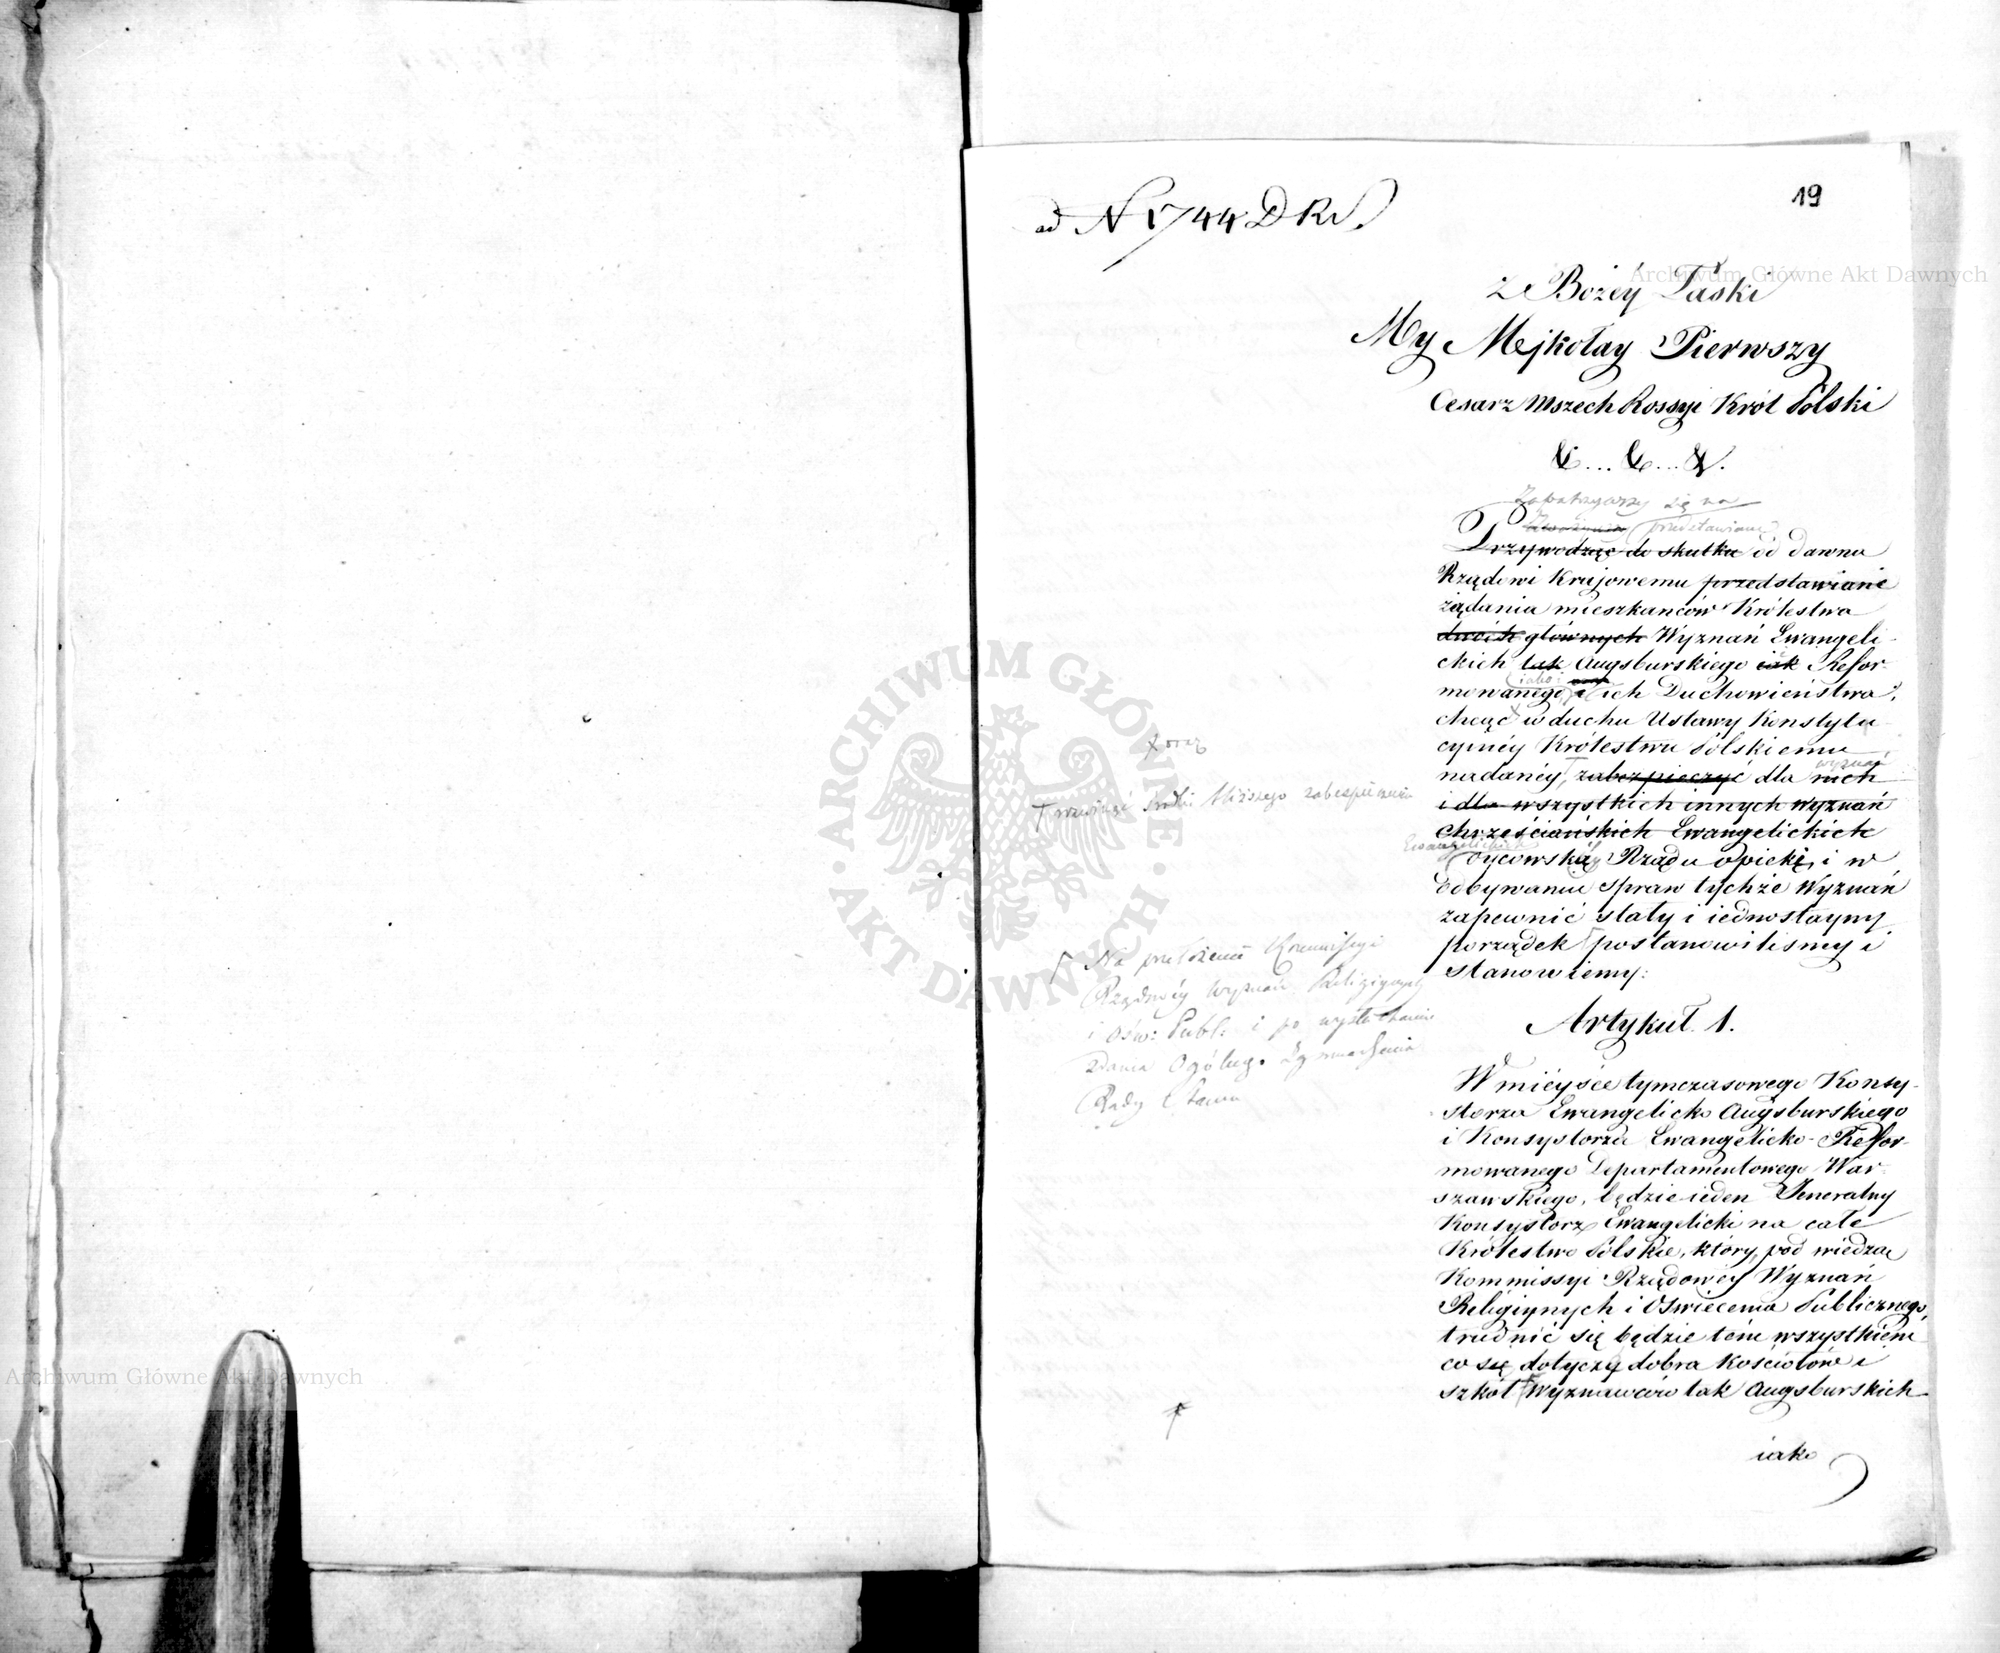 19
ad N 1744 D K W.
Z Bożéy Łaski
My Mejkołay Pierwszy
Cesarz Wszech Rossyi Król Polski
&... &... &.
Zapatrzywszy się na
przedstawiane
Przywodząc do skutku od dawna
Rządowi Krajowemu przedstawiane
żądania mieszkańców Królestwa
dwóch głównych Wyznań Ewangeli-
ckich tak Augsburskiego iak Refor-
mowanego i ich Duchowieństwa,
chcąc w duchu Ustawy Konstytu-
cyinéy Królestwu Polskiemu
nadanéy, zabezpieczyć dla nich
wyznań
i dla wszystkich innych Wyznań
Chrześciańskich Ewangelickich
Ewangelickich
Oycowską Rządu opiekę, i w
odbywaniu spraw tychże Wyznań
zapewnić stały i iednostayny
porządek postanowiliśmy i
stanowiemy:
x oraz
środki bliższego zabezpieczenia
Na przełożenie Kommissyi
Rządowéy Wyznań Religiynych
i Ośw: Publ: i po wysłuchaniu
zdania Ogólneg. Zgromadzenia
Rady Stanu
Artykuł 1.
W mieysce tymczasowego Konsy-
storza Ewangelicko Augsburskiego
i Konsystorza Ewangelicko-Refor-
mowanego Departamentowego War-
szawskiego, będzie ieden Jeneralny
Konsystorz Ewangelicki na całe
Królestwo Polskie, który pod wiedzą
Kommissyi Rządowey Wyznań
Religiynych i Oświecenia Publicznego,
trudnić się będzie tém wszystkiém
co się dotyczy dobra Kościołów i
szkół Wyznawców tak Augsburskich
iako
ARCHIWUM GŁÓWNE AKT DAWNYCH
Archiwum Główne Akt Dawnych
Archiwum Główne Akt Dawnych